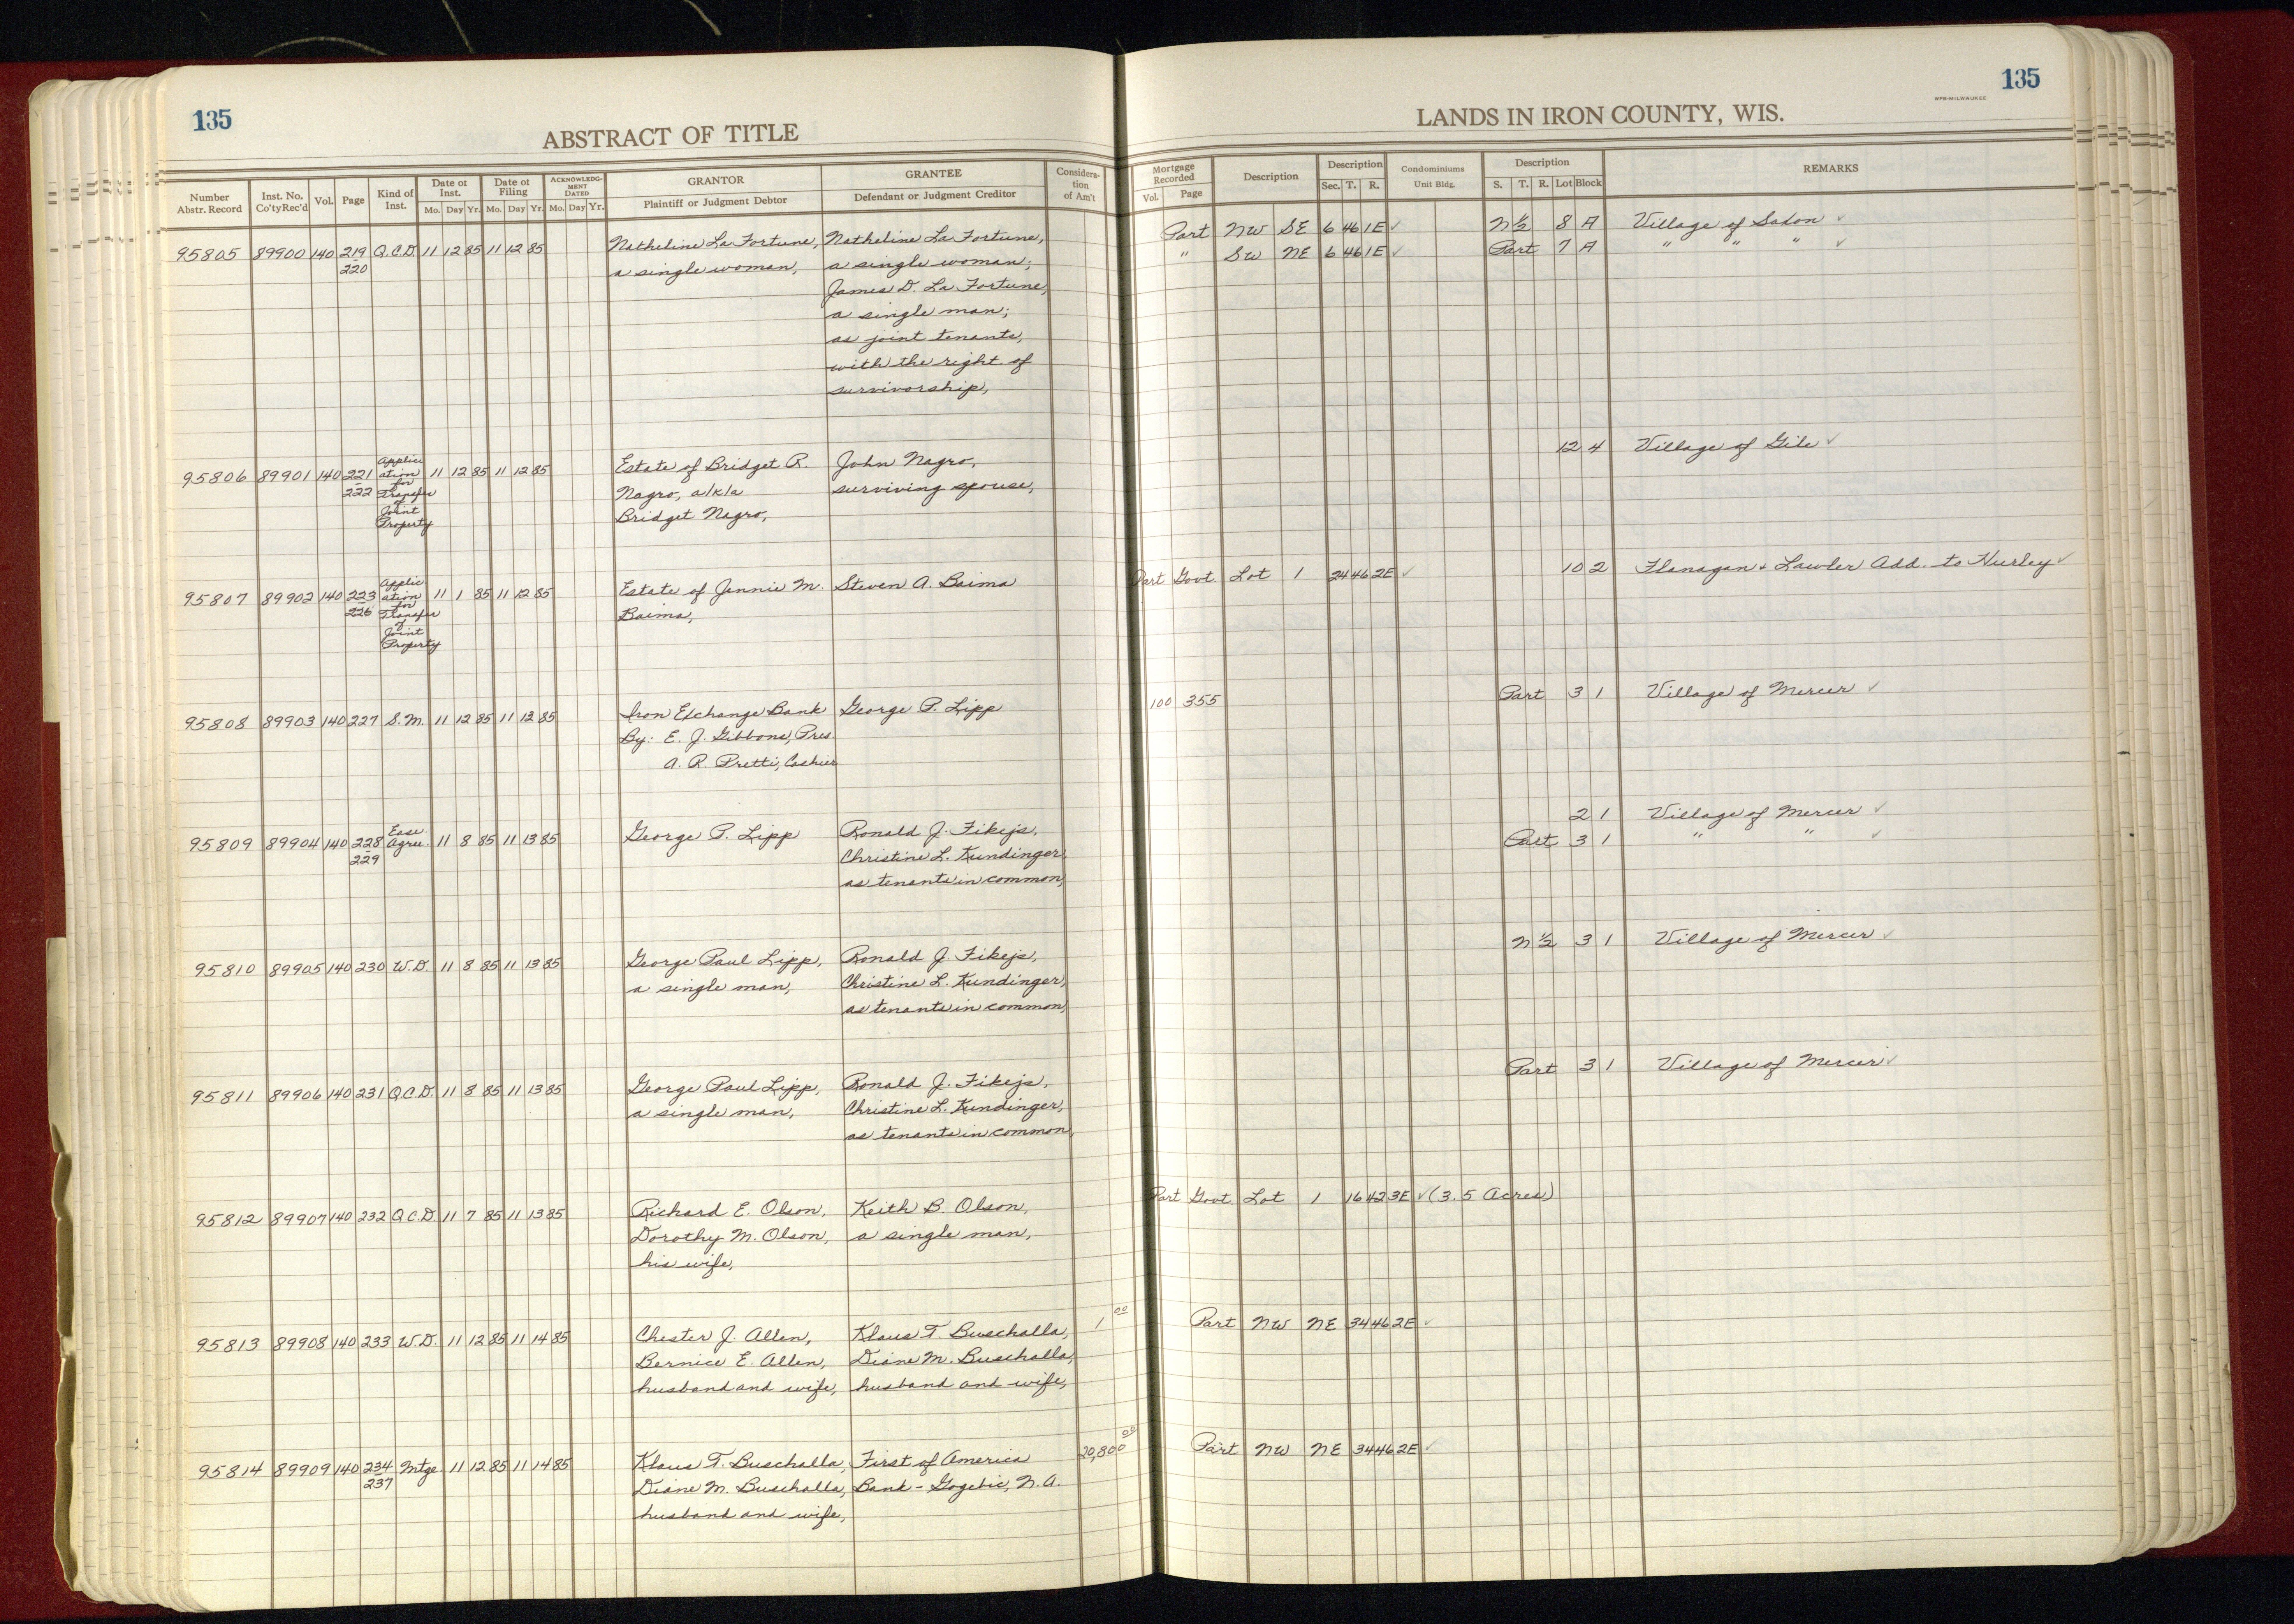 135
ABSTRACT OF TITLE
Number Abstr. Record | Inst. No. Co'ty Rec'd | Vol. | Page | Kind of Inst. | Date of Inst. Mo. Day Yr. | Date of Filing Mo. Day Yr. | ACKNOWLEDGMENT DATED Mo. Day Yr. | GRANTOR Plaintiff or Judgment Debtor | GRANTEE Defendant or Judgment Creditor | Consideration of Am't
95805 89900 140 219 Q.C.D. 11 12 85 11 12 85 Natheline La Fortune, Natheline La Fortune,
220 a single woman, a single woman;
James D. La Fortune,
a single man;
as joint tenants,
with the right of
survivorship,
95806 89901 140 221 222 Application for Transfer of Joint Property 11 12 85 11 12 85 Estate of Bridget R. John Nagro,
Nagro, a/k/a surviving spouse,
Bridget Nagro,
95807 89902 140 223 226 Application for Transfer of Joint Property 11 1 85 11 12 85 Estate of Jennie M. Steven A. Baima
Baima,
95808 89903 140 227 S.M. 11 12 85 11 12 85 Iron Exchange Bank George P. Lipp
By: E. J. Gibbons, Pres.
A. R. Pretti, Cashier
95809 89904 140 228 229 Ease. Agree. 11 8 85 11 13 85 George P. Lipp Ronald J. Fikejs,
Christine L. Kundinger,
as tenants in common,
95810 89905 140 230 W.D. 11 8 85 11 13 85 George Paul Lipp, Ronald J. Fikejs,
a single man, Christine L. Kundinger,
as tenants in common,
95811 89906 140 231 Q.C.D. 11 8 85 11 13 85 George Paul Lipp, Ronald J. Fikejs,
a single man, Christine L. Kundinger,
as tenants in common,
95812 89907 140 232 Q.C.D. 11 7 85 11 13 85 Richard E. Olson, Keith B. Olson,
Dorothy M. Olson, a single man,
his wife,
95813 89908 140 233 W.D. 11 12 85 11 14 85 Chester J. Allen, Klaus T. Buschalla, 1 00
Bernice E. Allen, Diane M. Buschalla,
husband and wife, husband and wife,
95814 89909 140 234 237 Mtge 11 12 85 11 14 85 Klaus T. Buschalla, First of America 20,800 00
Diane M. Buschalla, Bank - Gogebic, N.A.
husband and wife,
135
WPB-MILWAUKEE
LANDS IN IRON COUNTY, WIS.
Mortgage Recorded Vol. Page | Description | Description Sec. T. R. | Condominiums Unit Bldg. | Description S. T. R. Lot Block | REMARKS
Part NW SE 6 46 1E ✓ N½ 8 A Village of Saxon ✓
" SW NE 6 46 1E ✓ Part 7 A " " " ✓
12 4 Village of Gile ✓
Part Govt. Lot 1 24 46 2E ✓ 10 2 Flanagan & Lawler Add. to Hurley ✓
100 355 Part 3 1 Village of Mercer ✓
2 1 Village of Mercer ✓
Part 3 1 " " ✓
N½ 3 1 Village of Mercer ✓
Part 3 1 Village of Mercer ✓
Part Govt. Lot 1 16 42 3E ✓ (3.5 Acres)
Part NW NE 34 46 2E ✓
Part NW NE 34 46 2E ✓